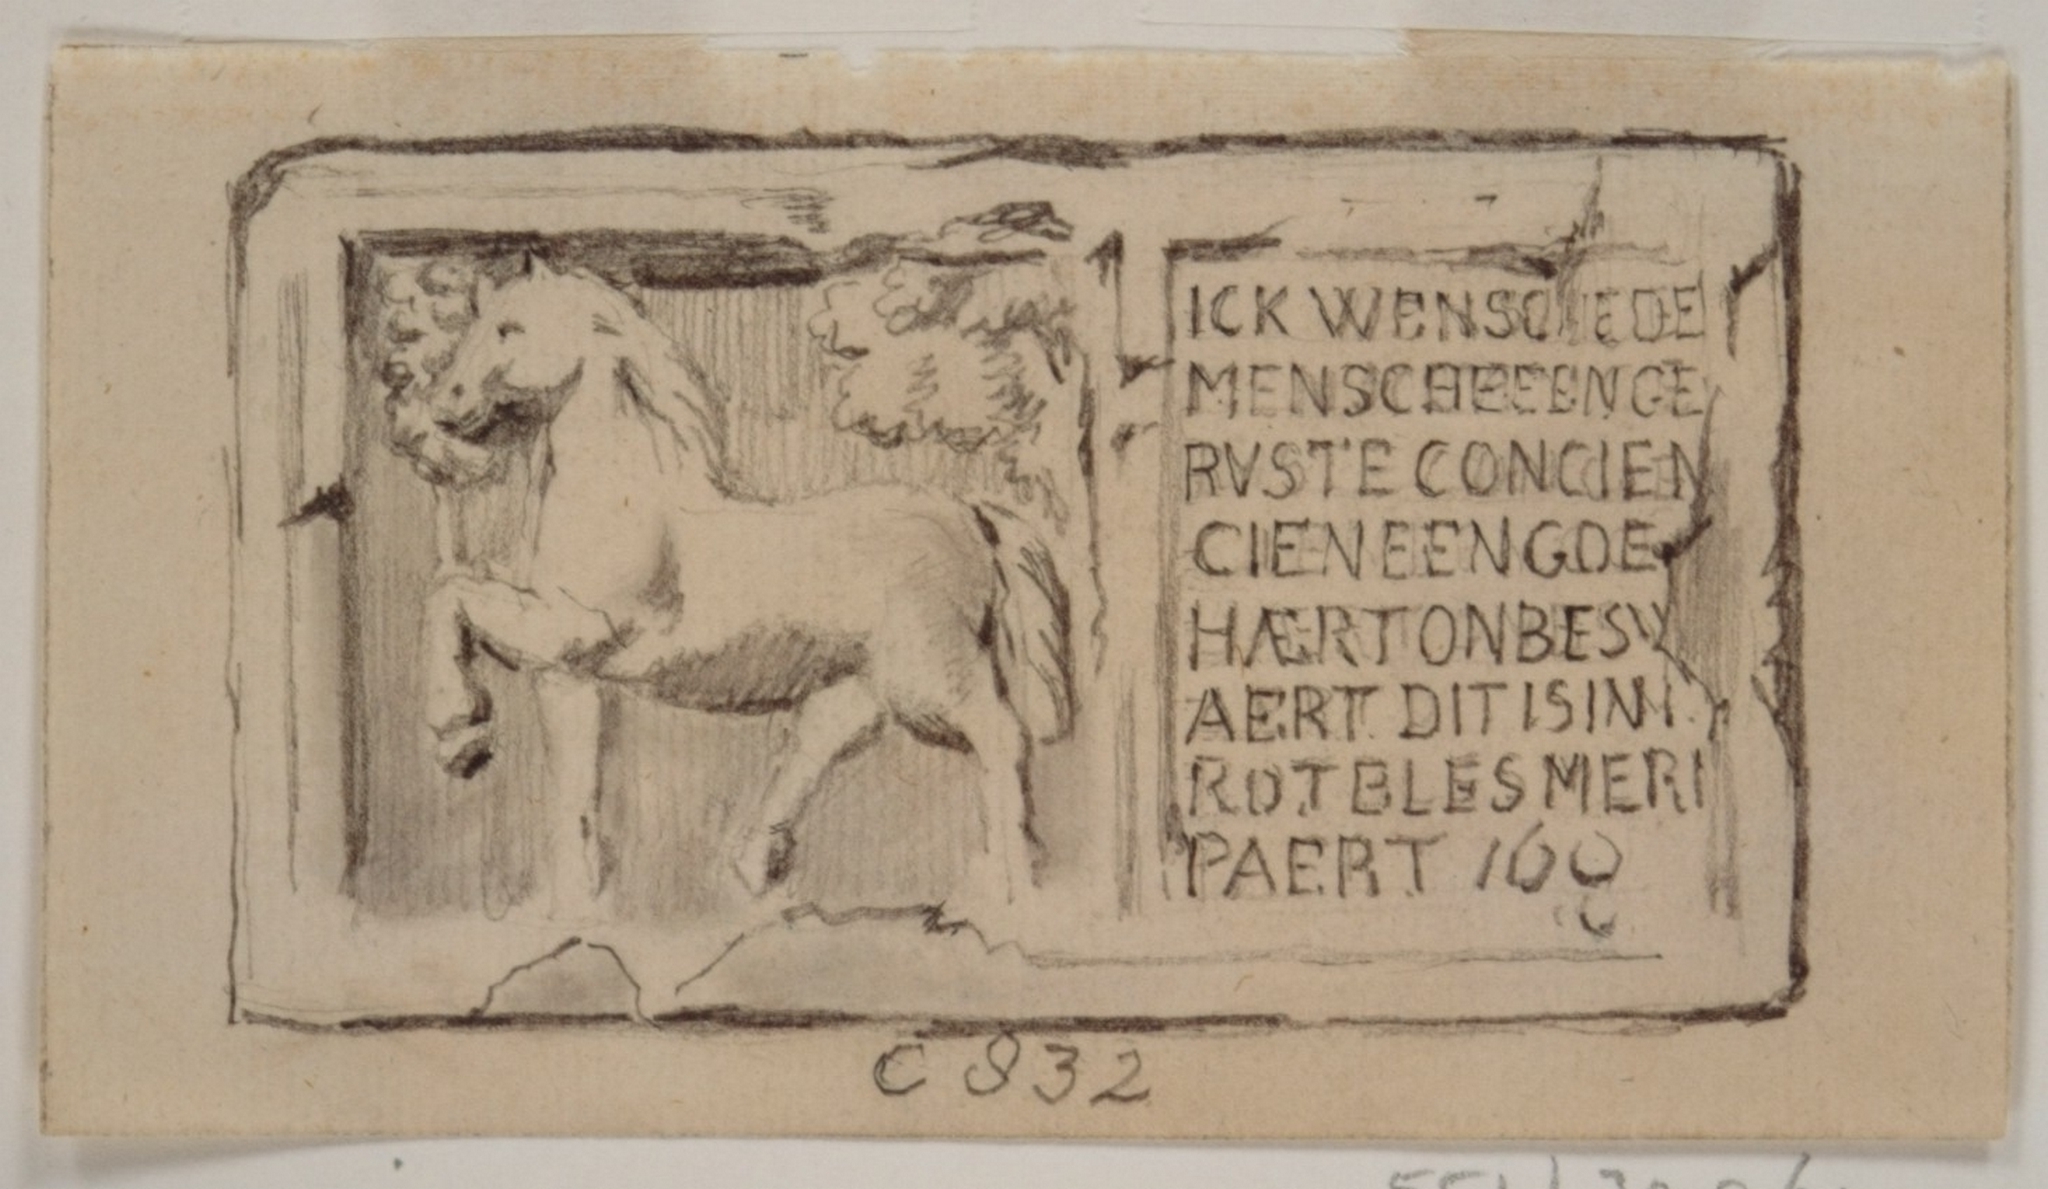 ICK WENSCHEDE
MENSCHEEENGE
RVSTE CONCIEN
CIEN EEN GOE
HÆRT ONBESV
AERT DIT IS IN
ROTBLES MERI
PAERT
C 832